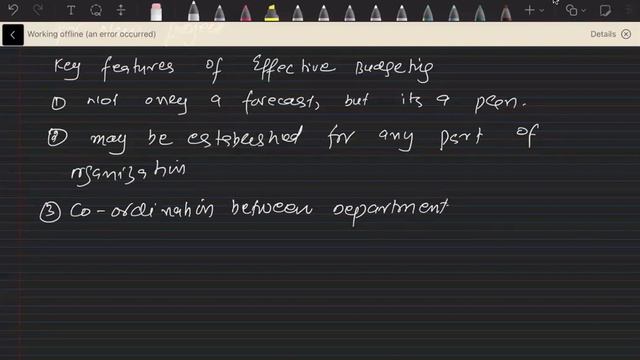 Working offline (an error occurred)
Details
Key features of Effective Budgeting
① not only a forecast, but its a plan.
② may be established for any part of
organization
③ Co-ordination between department